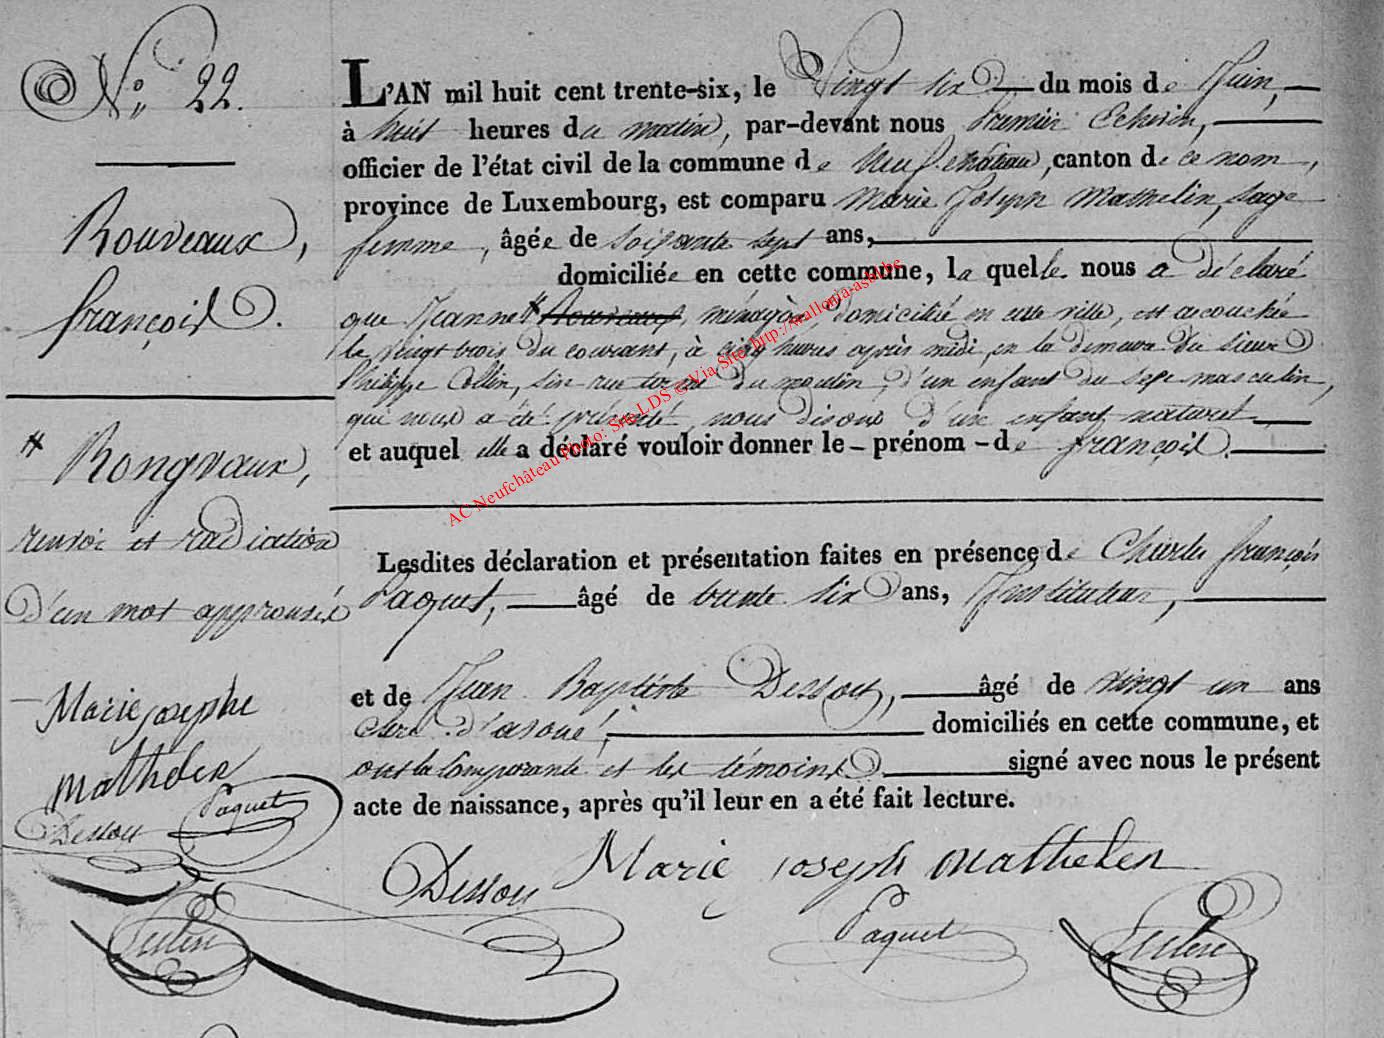 N° 22.
Rouveaux,
françois.
# Rongvaux,
renvoi et radiation
d'un mot approuvés
Marie josephe
mathelen
Dessou Paquet
L'AN mil huit cent trente-six, le Vingt six du mois de Juin,
à huit heures du matin, par-devant nous Premier Echevin,
officier de l'état civil de la commune de Neufchâteau, canton de ce nom,
province de Luxembourg, est comparu Marie Joseph Mathelin, sage
femme, âgée de soixante sept ans,
domiciliée en cette commune, laquelle nous a déclaré
que Jeanne # Rouveaux, ménagère, domicilié en cette ville, est accouchée
le vingt trois du courant, à cinq heures après midi, en la demeure du sieur
Philippe Collin, sise rue du moulin, d'un enfant du sexe masculin,
qui nous a été présenté, nous disons d'un enfant naturel
et auquel elle a déclaré vouloir donner le prénom de françois.
Lesdites déclaration et présentation faites en présence de Charles françois
Paquet, âgé de trente six ans, Instituteur,
et de Jean Baptiste Dessou, âgé de vingt un ans
clerc d'avoué, domiciliés en cette commune, et
ont la Comparante et les témoins signé avec nous le présent
acte de naissance, après qu'il leur en a été fait lecture.
Dessou Marie joseph mathelen
Paquet
AC Neufchâteau Photo: Ste LDS © Via Site http://wallonia-asbl.be